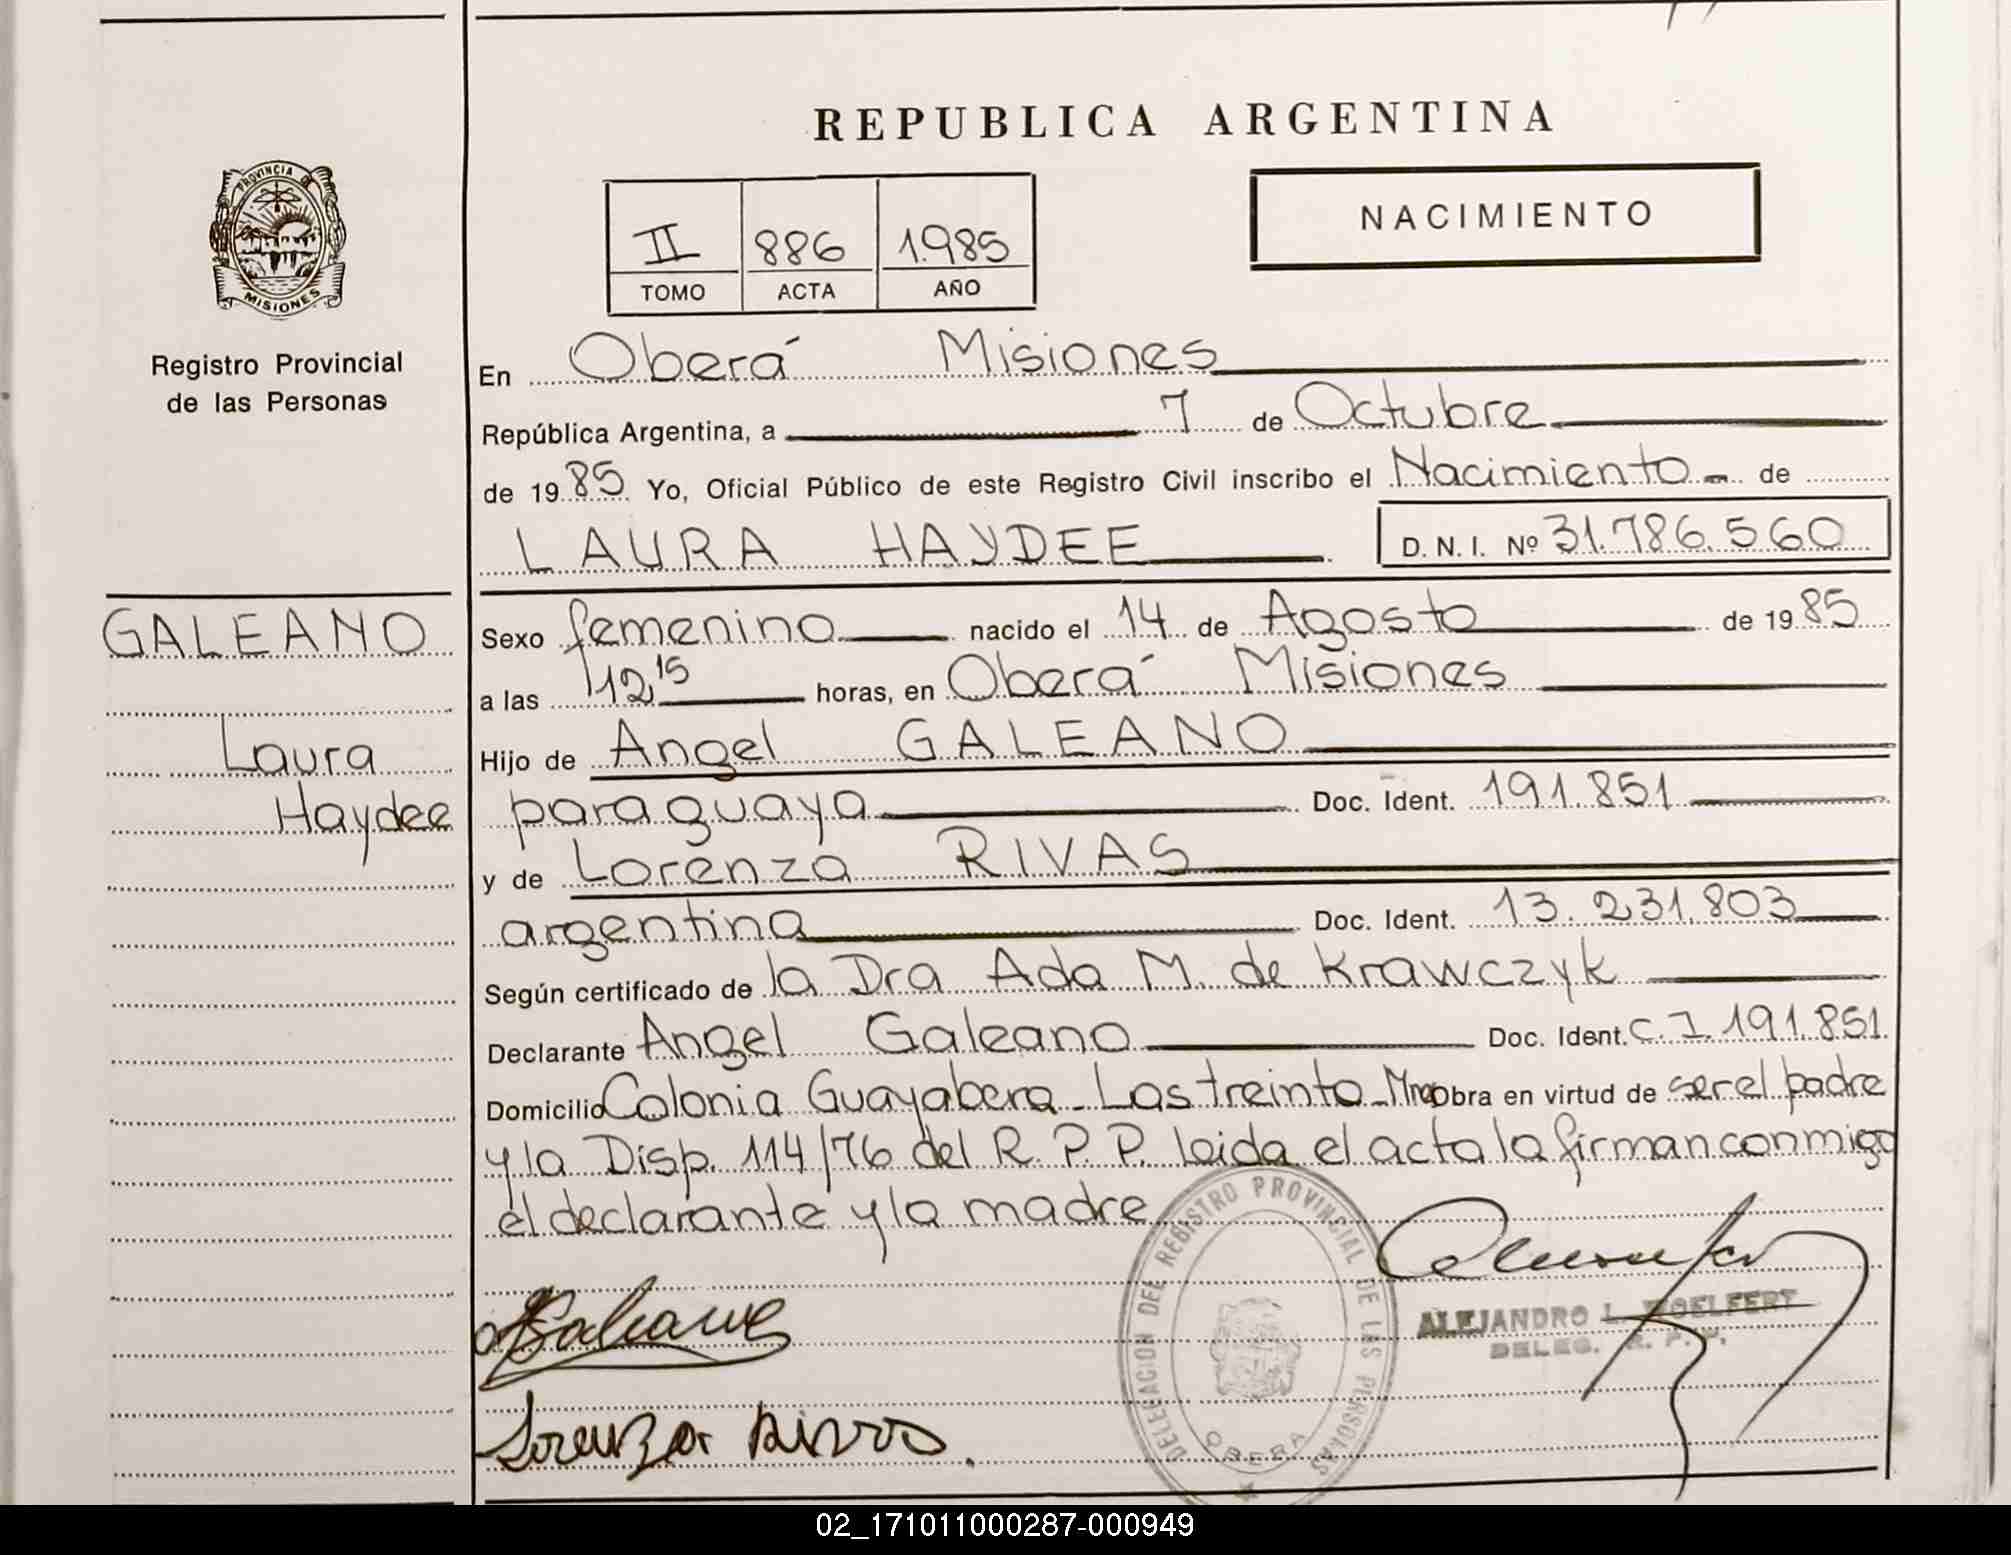 REPUBLICA ARGENTINA
PROVINCIA DE
MISIONES
Registro Provincial
de las Personas
II 886 1.985
TOMO ACTA AÑO
NACIMIENTO
En Oberá Misiones
República Argentina, a 7 de Octubre
de 19 85 Yo, Oficial Público de este Registro Civil inscribo el Nacimiento - de
LAURA HAYDEE D. N. I. Nº 31.786.560
GALEANO
Laura
Haydee
Sexo femenino nacido el 14 de Agosto de 19 85
a las 12,15 horas, en Oberá Misiones
Hijo de Angel GALEANO
paraguaya Doc. Ident. 191.851
y de Lorenza RIVAS
argentina Doc. Ident. 13.231.803
Según certificado de la Dra Ada M. de Krawczyk
Declarante Angel Galeano Doc. Ident. C.I 191.851.
Domicilio Colonia Guayabera - Las treinta - Mnes Obra en virtud de ser el padre
y la Disp. 114/76 del R. P. P. leida el acta la firman conmigo
el declarante y la madre
DELEGACION DEL REGISTRO PROVINCIAL DE LAS PERSONAS
OBERA
ALEJANDRO L. WOELFERT
DELEG. R. P. P.
Galeano
Lorenza Rivas.
02_171011000287-000949